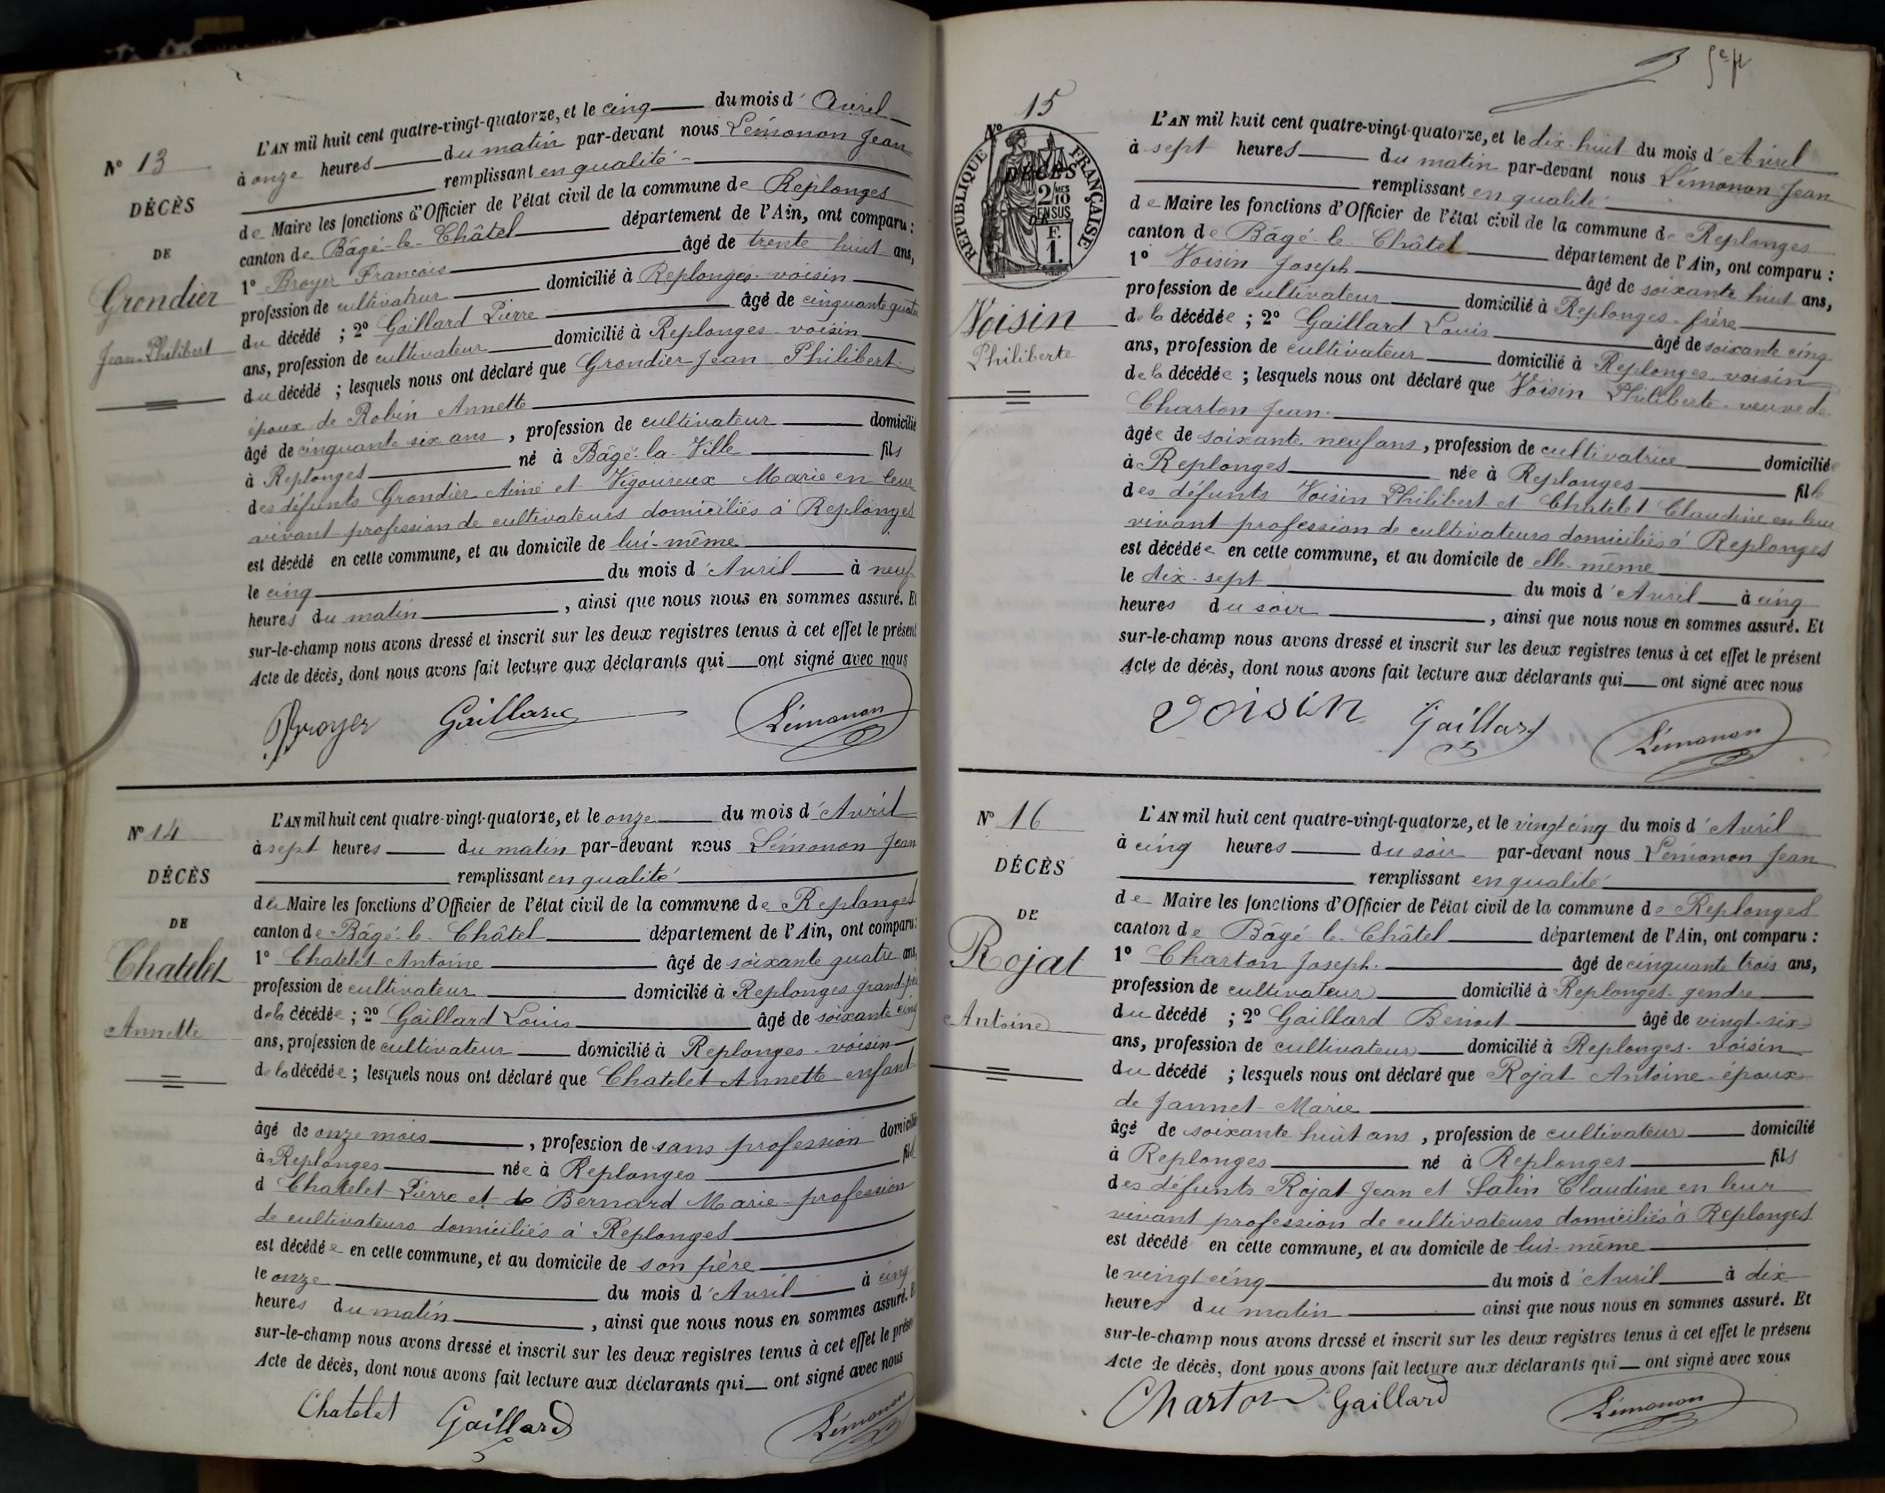 N° 13
DÉCÈS
DE
Grondier
Jean-Philibert
L'AN mil huit cent quatre-vingt-quatorze, et le cinq du mois d'Avril
à onze heures du matin par-devant nous Lémonon Jean
remplissant en qualité
de Maire les fonctions d'Officier de l'état civil de la commune de Replonges
canton de Bâgé-le-Châtel département de l'Ain, ont comparu :
1° Broyer Francois âgé de trente huit ans,
profession de cultivateur domicilié à Replonges voisin
du décédé ; 2° Gaillard Pierre âgé de cinquante quatre
ans, profession de cultivateur domicilié à Replonges voisin
du décédé ; lesquels nous ont déclaré que Grondier Jean Philibert
époux de Robin Annette
âgé de cinquante six ans, profession de cultivateur domicilié
à Replonges né à Bâgé-la-Ville fils
des défunts Grondier Aimé et Vigoureux Marie en leur
vivant profession de cultivateurs domiciliés à Replonges
est décédé en cette commune, et au domicile de lui-même
le cinq du mois d'Avril à neuf
heures du matin, ainsi que nous nous en sommes assuré. Et
sur-le-champ nous avons dressé et inscrit sur les deux registres tenus à cet effet le présent
Acte de décès, dont nous avons fait lecture aux déclarants qui ont signé avec nous
Broyer Gaillard Lémonon
N° 14
DÉCÈS
DE
Chatelet
Annette
L'AN mil huit cent quatre-vingt-quatorze, et le onze du mois d'Avril
à sept heures du matin par-devant nous Lémonon Jean
remplissant en qualité
de Maire les fonctions d'Officier de l'état civil de la commune de Replonges
canton de Bâgé-le-Châtel département de l'Ain, ont comparu :
1° Chatelet Antoine âgé de soixante quatre ans,
profession de cultivateur domicilié à Replonges grand-père
de la décédée ; 2° Gaillard Louis âgé de soixante cinq
ans, profession de cultivateur domicilié à Replonges voisin
de la décédée ; lesquels nous ont déclaré que Chatelet Annette enfant
âgé de onze mois, profession de sans profession domicilié
à Replonges née à Replonges fille
d Chatelet Pierre et de Bernard Marie profession
de cultivateurs domiciliés à Replonges
est décédée en cette commune, et au domicile de son père
le onze du mois d'Avril à cinq
heures du matin, ainsi que nous nous en sommes assuré. Et
sur-le-champ nous avons dressé et inscrit sur les deux registres tenus à cet effet le présent
Acte de décès, dont nous avons fait lecture aux déclarants qui ont signé avec nous
Chatelet Gaillard Lémonon
15
N°
DÉCÈS
RÉPUBLIQUE FRANÇAISE
2/10 MES
EN SUS
F.
1.
DE
Voisin
Philiberte
L'AN mil huit cent quatre-vingt-quatorze, et le dix-huit du mois d'Avril
à sept heures du matin par-devant nous Lémonon Jean
remplissant en qualité
de Maire les fonctions d'Officier de l'état civil de la commune de Replonges
canton de Bâgé-le-Châtel département de l'Ain, ont comparu :
1° Voisin Joseph âgé de soixante huit ans,
profession de cultivateur domicilié à Replonges frère
de la décédée ; 2° Gaillard Louis âgé de soixante cinq
ans, profession de cultivateur domicilié à Replonges voisin
de la décédée ; lesquels nous ont déclaré que Voisin Philiberte veuve de
Charton Jean
âgée de soixante neuf ans, profession de cultivatrice domiciliée
à Replonges née à Replonges fille
des défunts Voisin Philibert et Chatelet Claudine en leur
vivant profession de cultivateurs domiciliés à Replonges
est décédée en cette commune, et au domicile de elle-même
le dix-sept du mois d'Avril à cinq
heures du soir, ainsi que nous nous en sommes assuré. Et
sur-le-champ nous avons dressé et inscrit sur les deux registres tenus à cet effet le présent
Acte de décès, dont nous avons fait lecture aux déclarants qui ont signé avec nous
Voisin Gaillard Lémonon
N° 16
DÉCÈS
DE
Rojat
Antoine
L'AN mil huit cent quatre-vingt-quatorze, et le vingt cinq du mois d'Avril
à cinq heures du soir par-devant nous Lémonon Jean
remplissant en qualité
de Maire les fonctions d'Officier de l'état civil de la commune de Replonges
canton de Bâgé-le-Châtel département de l'Ain, ont comparu :
1° Charton Joseph âgé de cinquante trois ans,
profession de cultivateur domicilié à Replonges gendre
du décédé ; 2° Gaillard Benoit âgé de vingt-six
ans, profession de cultivateur domicilié à Replonges voisin
du décédé ; lesquels nous ont déclaré que Rojat Antoine époux
de Jannet Marie
âgé de soixante huit ans, profession de cultivateur domicilié
à Replonges né à Replonges fils
des défunts Rojat Jean et Salin Claudine en leur
vivant profession de cultivateurs domiciliés à Replonges
est décédé en cette commune, et au domicile de lui-même
le vingt cinq du mois d'Avril à dix
heures du matin ainsi que nous nous en sommes assuré. Et
sur-le-champ nous avons dressé et inscrit sur les deux registres tenus à cet effet le présent
Acte de décès, dont nous avons fait lecture aux déclarants qui ont signé avec nous
Charton Gaillard Lémonon